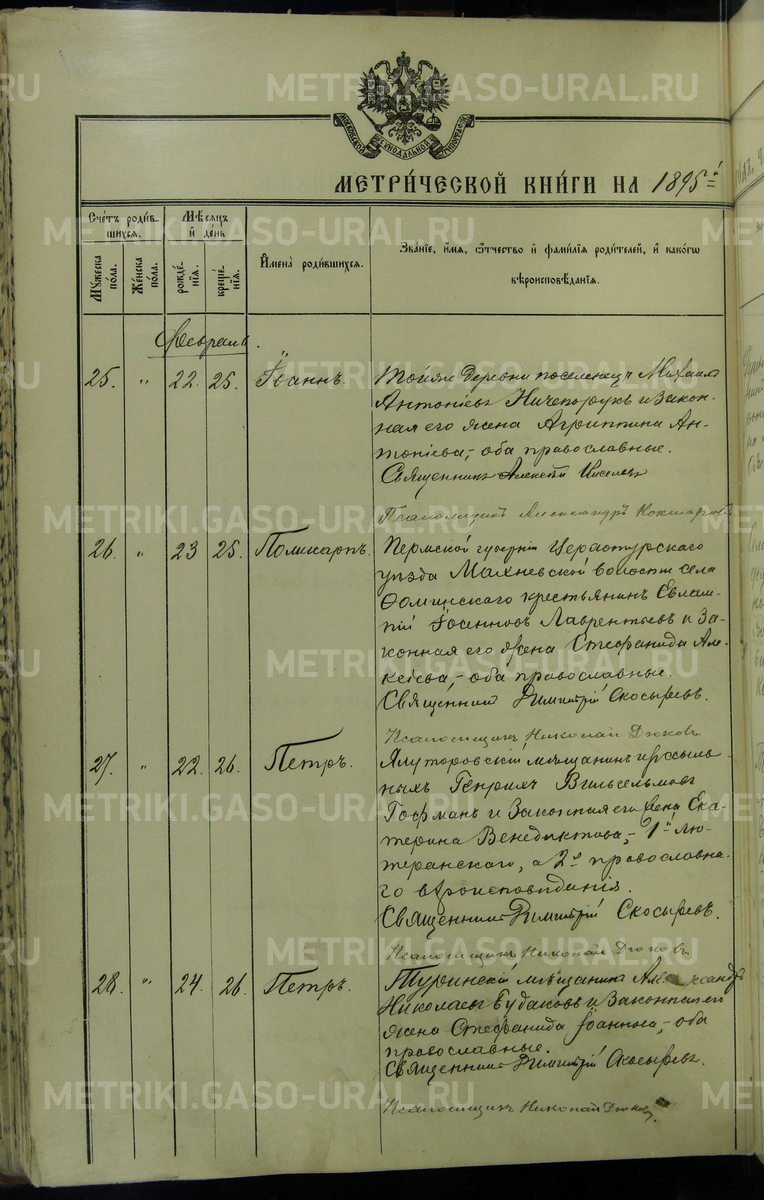 METRIKI.GASO-URAL.RU
МОСКОВСКОЙ СѴНОДАЛЬНОЙ ТИПОГРАФІИ
МЕТРИ́ЧЕСКОЙ КНИ́ГИ НА 1895й
Сче́тъ роди́в-
шихся.
Мѣ́сяцъ
и҆ де́нь
Му́жеска по́ла.
Же́нска по́ла.
рожде́-
нїѧ.
креще́-
нїѧ.
И҆мена̀ роди́вшихся.
Зва́нїе, и҆́мя, ѻ҆́тчество и҆ фами́лїѧ роди́телей, и҆ како́гѡ
вѣроисповѣ́данїѧ.
Февраль.
25. " 22. 25. Іоаннъ. Той же деревни поселенецъ Михаилъ
Антоніевъ Ничепорукъ и закон-
ная его жена Агриппина Ан-
тоніева, - оба православные.
Священникъ Алексѣй
Псаломщикъ Александръ Кокшаровъ
26. " 23 25. Поликарпъ. Пермской губерніи Верхотурскаго
уѣзда Махневской волости села
Ѳоминскаго крестьянинъ Евлам-
пій Іоанновъ Лаврентьевъ и за-
конная его жена Стефанида Але-
ксіева, - оба православные.
Священникъ Димитрій Скосыревъ.
Псаломщикъ Николай Дюковъ
27. " 22. 26. Петръ. Ялуторовскій мѣщанинъ изъ ссыль-
ныхъ Генрихъ Вильгельмовъ
Гофманъ и законная его жена Ека-
терина Венедиктова, - 1й лю-
теранскаго, а 2я православна-
го вѣроисповѣданія.
Священникъ Димитрій Скосыревъ.
Псаломщикъ Николай Дюковъ
28. " 24. 26. Петръ. Туринскій мѣщанинъ Александръ
Николаевъ Будаковъ и законная его
жена Стефанида Іоаннова, - оба
православные.
Священникъ Димитрій Скосыревъ.
Псаломщикъ Николай Дюковъ